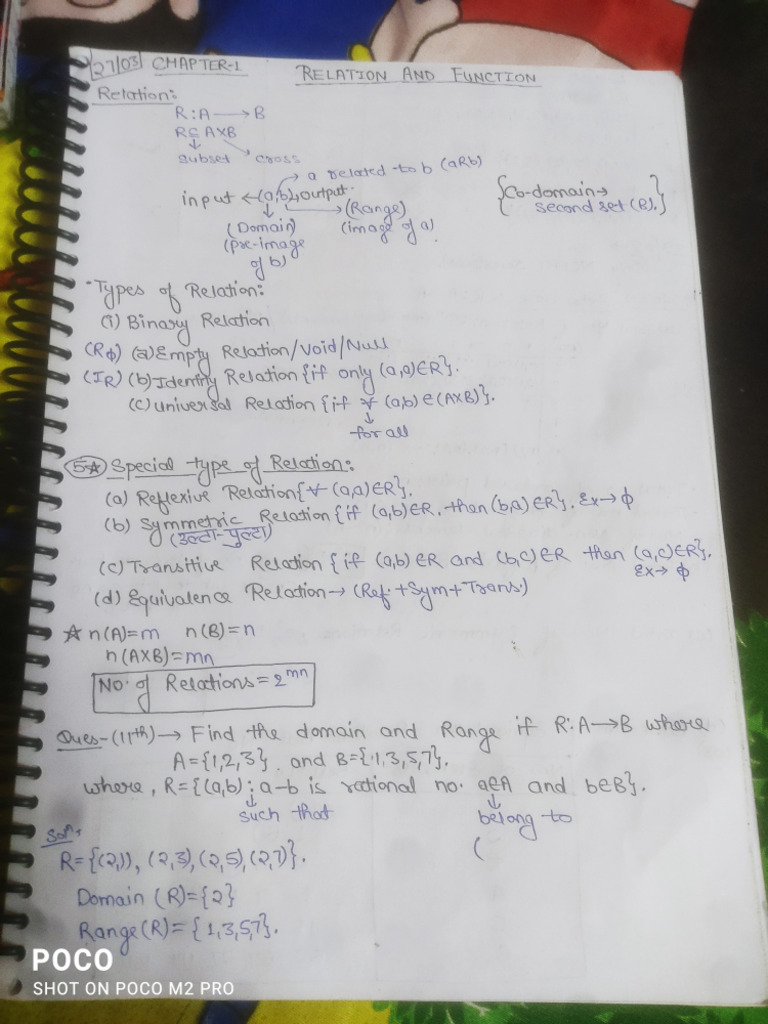 27/03 CHAPTER-1 RELATION AND FUNCTION
Relation:
R:A → B
R⊆ A×B
subset cross
a related to b (aRb)
input ← (a,b) output.
(Domain) (Range)
(pre-image (image of a)
of b)
{Co-domain→
second set (B).}
Types of Relation:
(i) Binary Relation
(Rφ) (a) Empty Relation/Void/Null
(IR) (b) Identity Relation {if only (a,a)∈R}.
(c) universal Relation {if ∀ (a,b) ∈ (A×B)}.
for all
5☆ Special type of Relation:
(a) Reflexive Relation {∀ (a,a)∈R}.
(b) Symmetric Relation {if (a,b)∈R. then (b,a)∈R}. Ex→ φ
(उल्टा-पुल्टा)
(c) Transitive Relation {if (a,b)∈R and (b,c)∈R then (a,c)∈R}.
Ex→ φ
(d) Equivalence Relation → (Ref.+Sym+Trans.)
☆ n(A)=m n(B)=n
n(A×B)=mn
No. of Relations = 2^mn
Ques-(11th)→ Find the domain and Range if R:A→B where
A={1,2,3} and B={1,3,5,7}.
where, R={(a,b) : a-b is rational no. a∈A and b∈B}.
such that belong to
Sol^n. (
R={(2,1), (2,3), (2,5), (2,7)}.
Domain (R)={2}
Range(R) = {1,3,5,7}.
POCO
SHOT ON POCO M2 PRO